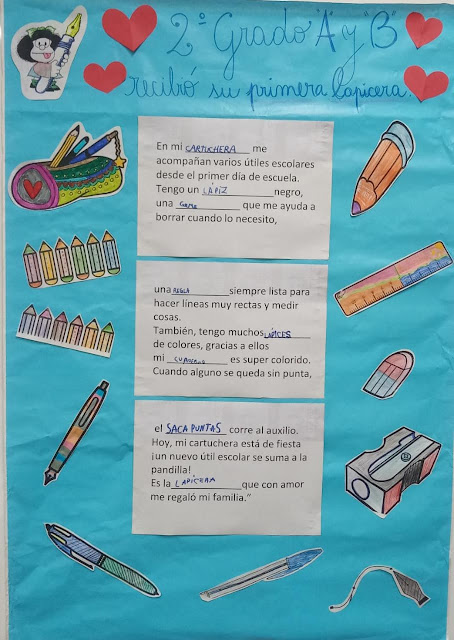 2º Grado "A" y "B"
recibió su primera lapicera.
En mi CARTUCHERA me
acompañan varios útiles escolares
desde el primer día de escuela.
Tengo un LÁPIZ negro,
una Goma que me ayuda a
borrar cuando lo necesito,
una REGLA siempre lista para
hacer líneas muy rectas y medir
cosas.
También, tengo muchos LÁPICES
de colores, gracias a ellos
mi CUADERNO es super colorido.
Cuando alguno se queda sin punta,
el SACAPUNTAS corre al auxilio.
Hoy, mi cartuchera está de fiesta
¡un nuevo útil escolar se suma a la
pandilla!
Es la LAPICERA que con amor
me regaló mi familia."